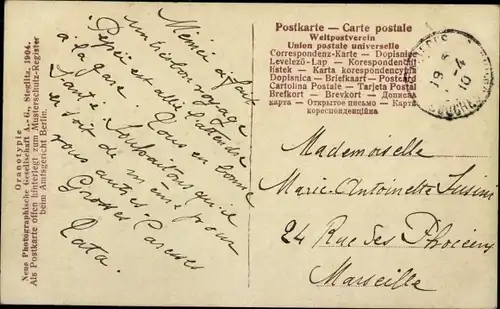 Oranotypie
Neue Photographische Gesellschaft A.-G., Steglitz, 1904.
Als Postkarte offen hinterlegt zum Musterschutz-Register
beim Amtsgericht Berlin.
Mémé a fait
un très bon voyage
Pépée est allé l'attendre
à la gare. Tous en bonne
santé. Souhaitons qu'il
en soit de même pour
vous autres.
Grosses Caresses
Tata.
Postkarte – Carte postale
Weltpostverein
Union postale universelle
Correspondenz-Karte - Dopisnice
Levelező-Lap — Korespondent
listek - Karta korespondencyjna
Dopisnica - Briefkaart - Postcard
Cartolina Postale - Tarjeta Postal
Brefkort - Brevkort - Дописна
карта - Открытое письмо - Карта
кореспонденційна
19 - 4
10
Mademoiselle
Marie-Antoinette
24 Rue des Phocéens
Marseille